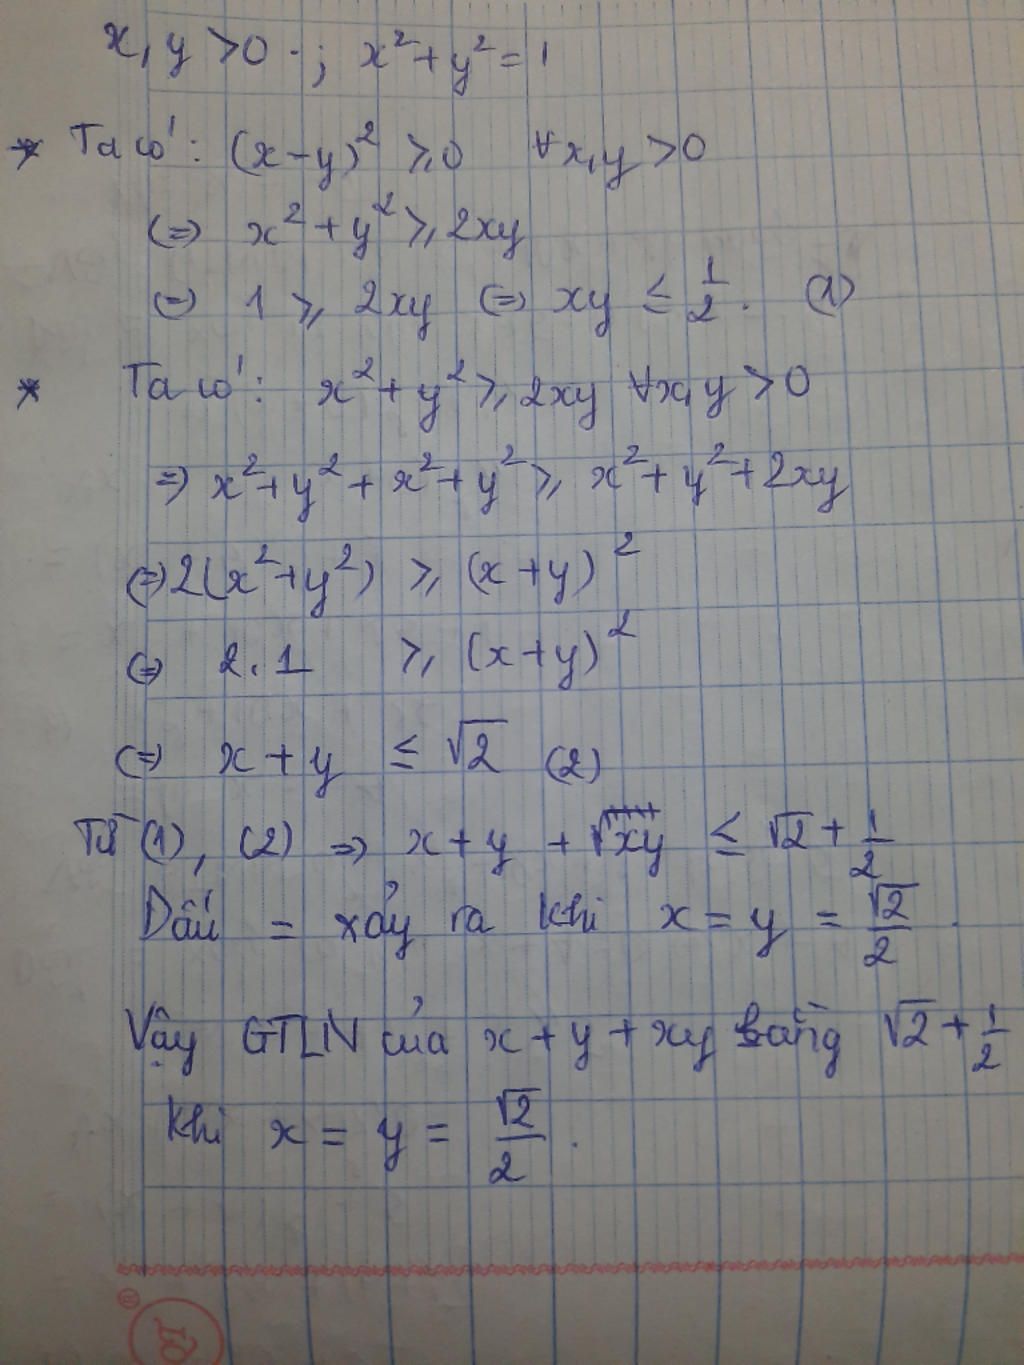 x, y > 0 ; x² + y² = 1
* Ta có: (x - y)² ≥ 0 ∀x, y > 0
(=) x² + y² ≥ 2xy
(=) 1 ≥ 2xy (=) xy ≤ 1/2. (1)
* Ta có: x² + y² ≥ 2xy ∀x, y > 0
=) x² + y² + x² + y² ≥ x² + y² + 2xy
(=) 2(x² + y²) ≥ (x + y)²
(=) 2.1 ≥ (x + y)²
(=) x + y ≤ √2 (2)
Từ (1), (2) =) x + y + xy ≤ √2 + 1/2
Dấu = xảy ra khi x = y = √2/2.
Vậy GTLN của x + y + xy bằng √2 + 1/2
khi x = y = √2/2.